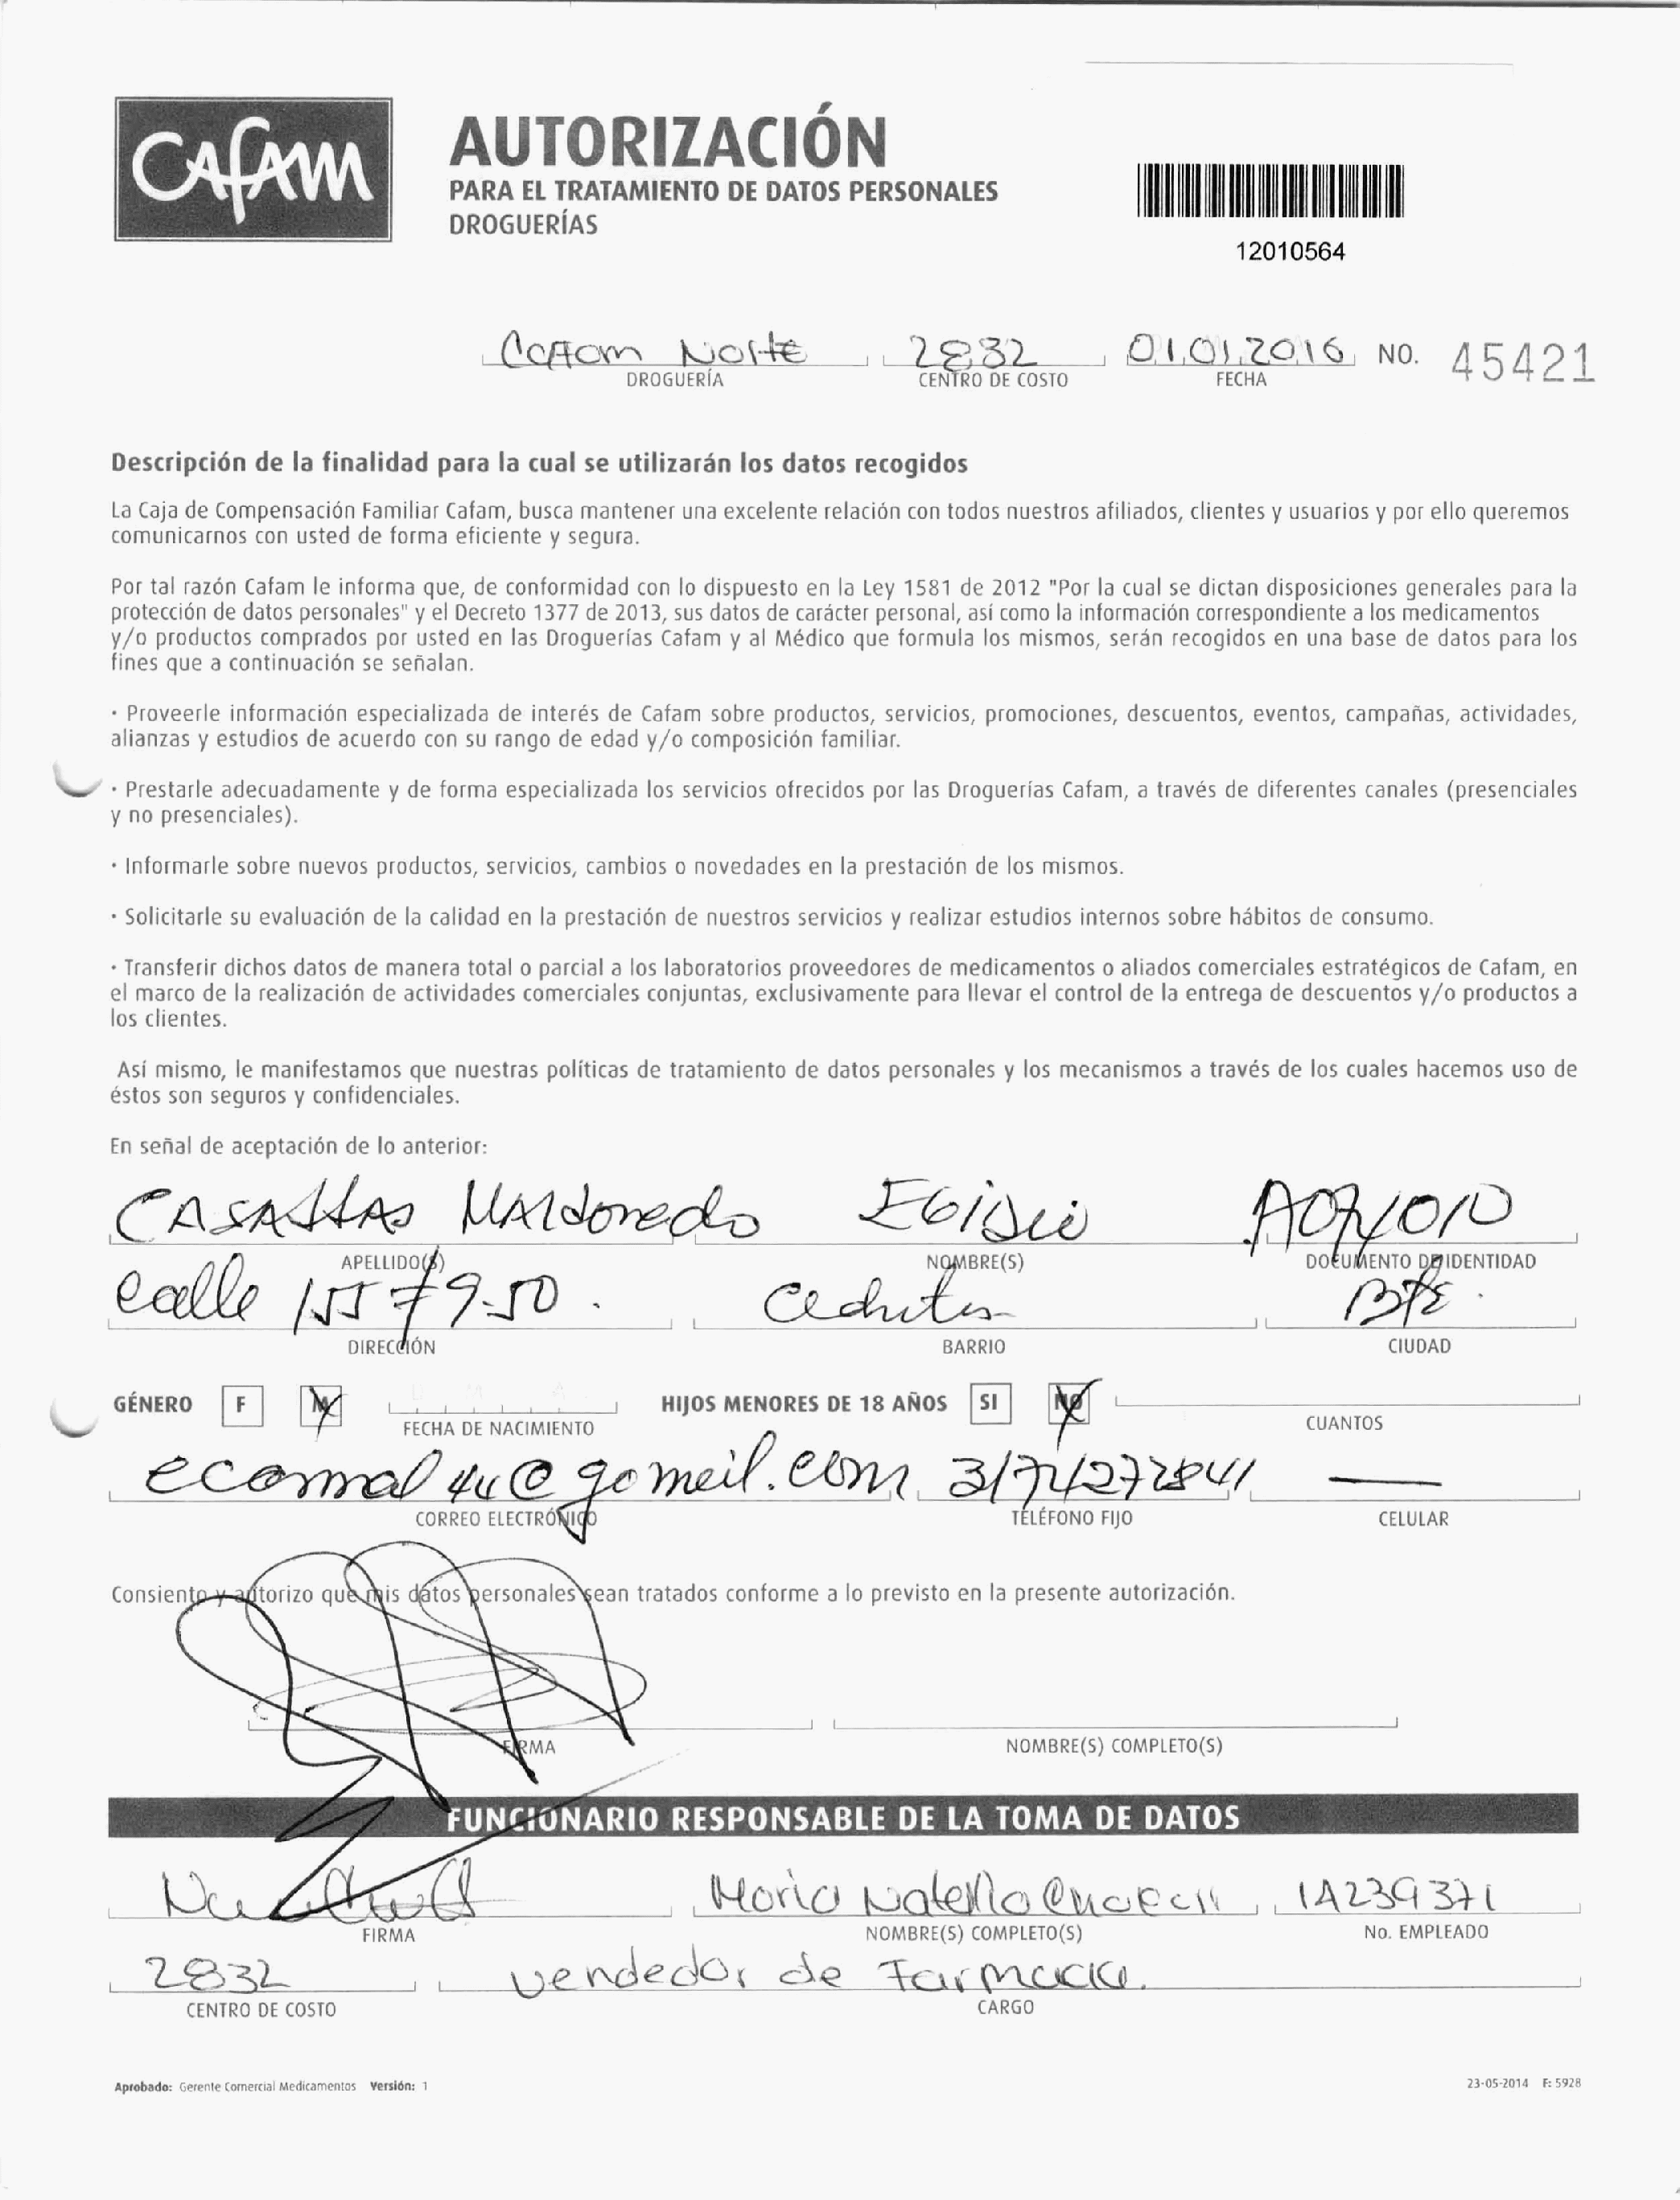 CAFAM
AUTORIZACIÓN
PARA EL TRATAMIENTO DE DATOS PERSONALES
DROGUERÍAS
12010564
Cafam Norte 2832 01.01.2016 NO. 45421
DROGUERÍA CENTRO DE COSTO FECHA
Descripción de la finalidad para la cual se utilizarán los datos recogidos
La Caja de Compensación Familiar Cafam, busca mantener una excelente relación con todos nuestros afiliados, clientes y usuarios y por ello queremos
comunicarnos con usted de forma eficiente y segura.
Por tal razón Cafam le informa que, de conformidad con lo dispuesto en la Ley 1581 de 2012 "Por la cual se dictan disposiciones generales para la
protección de datos personales" y el Decreto 1377 de 2013, sus datos de carácter personal, así como la información correspondiente a los medicamentos
y/o productos comprados por usted en las Droguerías Cafam y al Médico que formula los mismos, serán recogidos en una base de datos para los
fines que a continuación se señalan.
· Proveerle información especializada de interés de Cafam sobre productos, servicios, promociones, descuentos, eventos, campañas, actividades,
alianzas y estudios de acuerdo con su rango de edad y/o composición familiar.
· Prestarle adecuadamente y de forma especializada los servicios ofrecidos por las Droguerías Cafam, a través de diferentes canales (presenciales
y no presenciales).
· Informarle sobre nuevos productos, servicios, cambios o novedades en la prestación de los mismos.
· Solicitarle su evaluación de la calidad en la prestación de nuestros servicios y realizar estudios internos sobre hábitos de consumo.
· Transferir dichos datos de manera total o parcial a los laboratorios proveedores de medicamentos o aliados comerciales estratégicos de Cafam, en
el marco de la realización de actividades comerciales conjuntas, exclusivamente para llevar el control de la entrega de descuentos y/o productos a
los clientes.
Así mismo, le manifestamos que nuestras políticas de tratamiento de datos personales y los mecanismos a través de los cuales hacemos uso de
éstos son seguros y confidenciales.
En señal de aceptación de lo anterior:
CASALLAS Maldonado Egidio
APELLIDO(S) NOMBRE(S) DOCUMENTO DE IDENTIDAD
calle 155 # 9-50. Cedritos Bta.
DIRECCIÓN BARRIO CIUDAD
GÉNERO F M D M A HIJOS MENORES DE 18 AÑOS SI NO
FECHA DE NACIMIENTO CUANTOS
ecamal44@gomeil.com
CORREO ELECTRÓNICO TELÉFONO FIJO CELULAR
Consiento y autorizo que mis datos personales sean tratados conforme a lo previsto en la presente autorización.
FIRMA NOMBRE(S) COMPLETO(S)
FUNCIONARIO RESPONSABLE DE LA TOMA DE DATOS
Maria Natalia 14239371
FIRMA NOMBRE(S) COMPLETO(S) No. EMPLEADO
2832 vendedor de Farmacia.
CENTRO DE COSTO CARGO
Aprobado: Gerente Comercial Medicamentos Versión: 1 23-05-2014 F: 5928